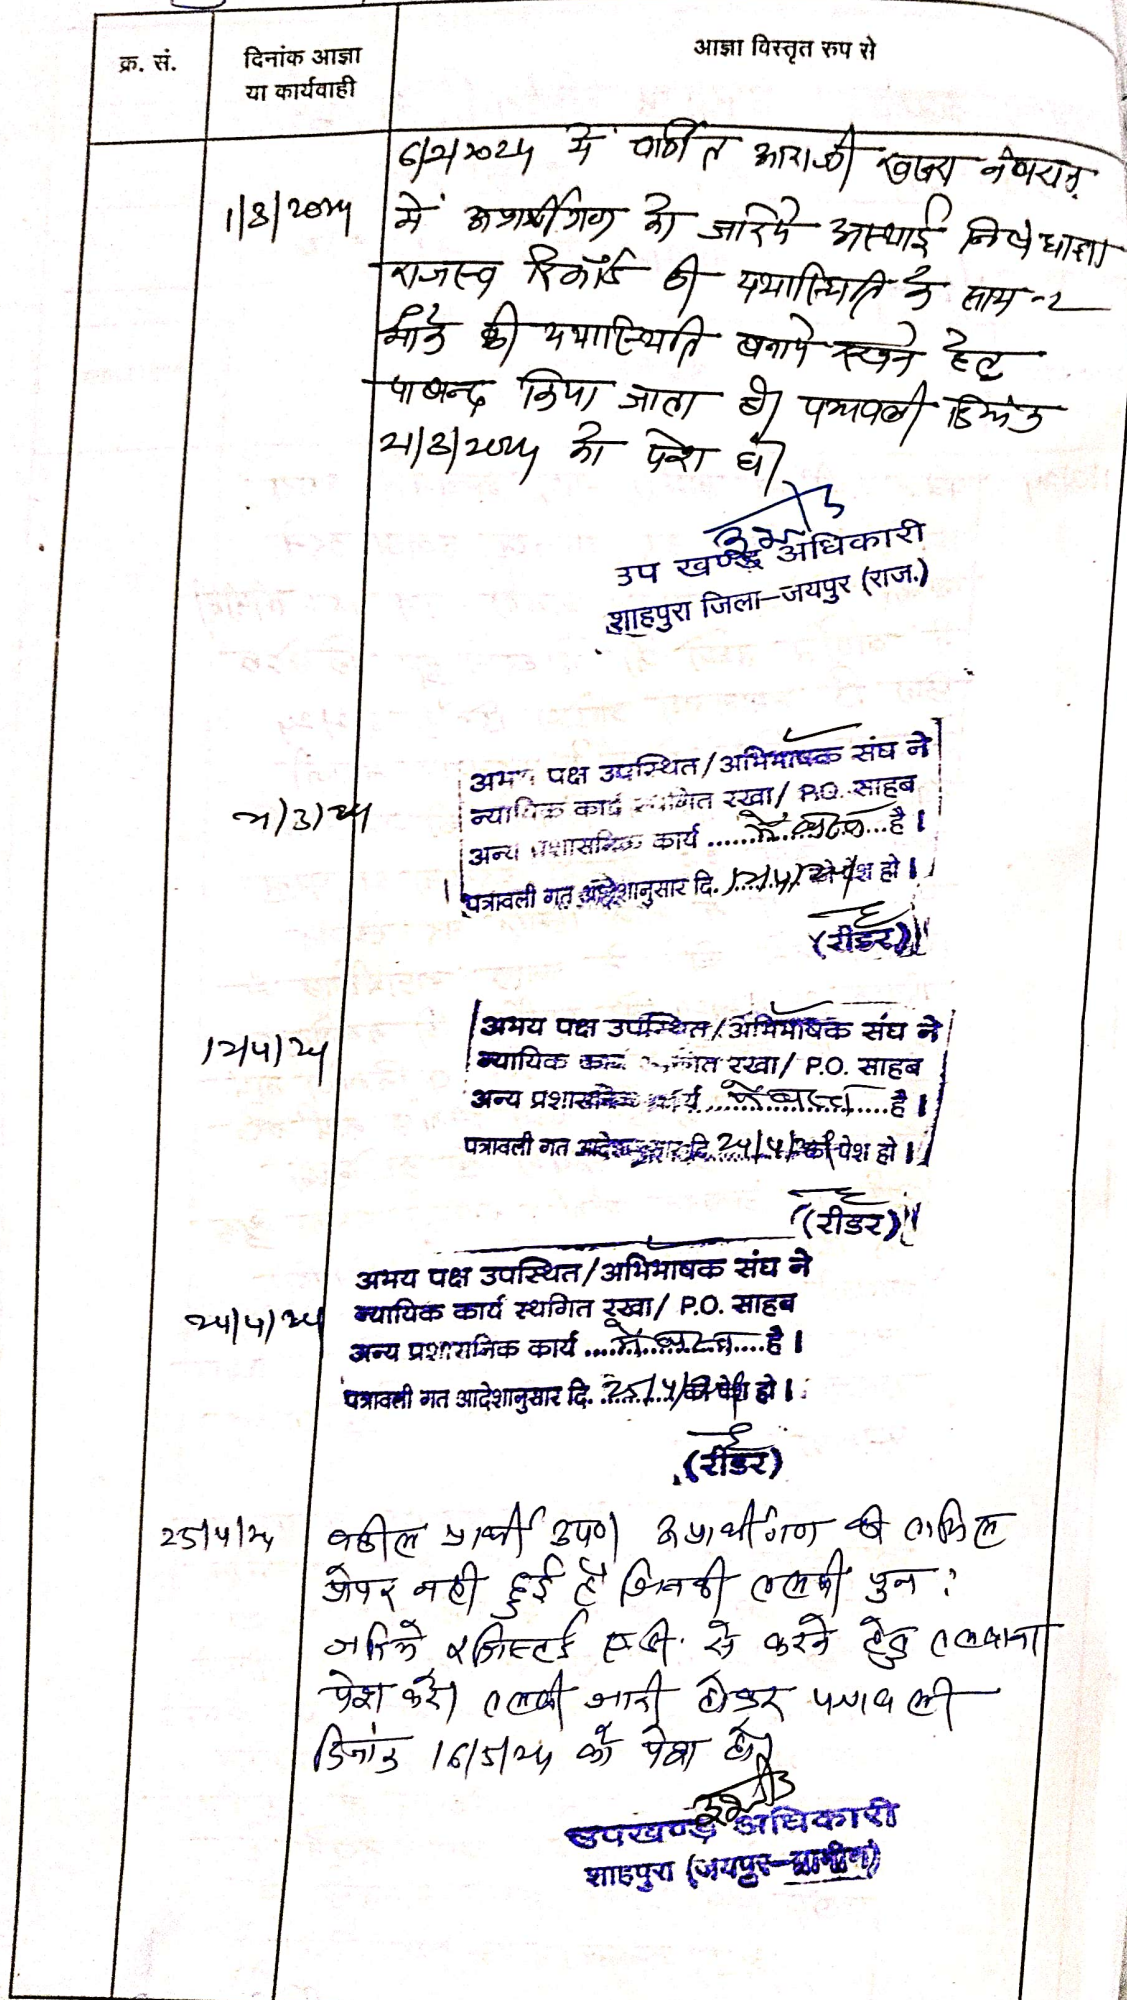 क्र. सं.
दिनांक आज्ञा
या कार्यवाही
आज्ञा विस्तृत रुप से
6/2/2024 में वर्णित आराजी खसरा
1/3/2024
में अप्रार्थीगण को जरिये अस्थाई निषेधाज्ञा
राजस्व रिकॉर्ड की यथास्थिति के साथ-2
मौके की यथास्थिति बनाये रखने हेतु
पाबन्द किया जाता है। पत्रावली दिनांक
21/3/2024 को पेश हो।
उप खण्ड अधिकारी
शाहपुरा जिला–जयपुर (राज.)
21/3/24
अभय पक्ष उपस्थित/अभिभाषक संघ ने
न्यायिक कार्य स्थगित रखा/ P.O. साहब
अन्य प्रशासनिक कार्य ......में व्यस्त...है।
पत्रावली गत आदेशानुसार दि. 12/4/24 को पेश हो।
(रीडर)
12/4/24
अभय पक्ष उपस्थित/अभिभाषक संघ ने
न्यायिक कार्य स्थगित रखा/ P.O. साहब
अन्य प्रशासनिक कार्य ......में व्यस्त......है।
पत्रावली गत आदेशानुसार दि. 24/4/24 को पेश हो।
(रीडर)
24/4/24
अभय पक्ष उपस्थित/अभिभाषक संघ ने
न्यायिक कार्य स्थगित रखा/ P.O. साहब
अन्य प्रशासनिक कार्य .....में व्यस्त.....है।
पत्रावली गत आदेशानुसार दि. 25/4/24 को पेश हो।
(रीडर)
25/4/24
वकील प्रार्थी उप०। अप्रार्थीगण की तामिल
नही हुई है जिनकी तलबी पुन:
जरिये रजिस्टर्ड ए.डी. से करने हेतु तलबाना
पेश करे। तलबी जारी होकर पत्रावली
दिनांक 16/5/24 को पेश हो।
उपखण्ड अधिकारी
शाहपुरा (जयपुर–ग्रामीण)